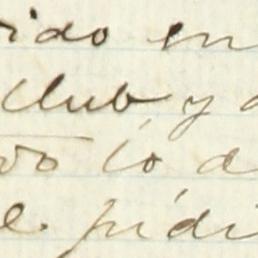 ido en
Club, y a
do lo a
e. pidi